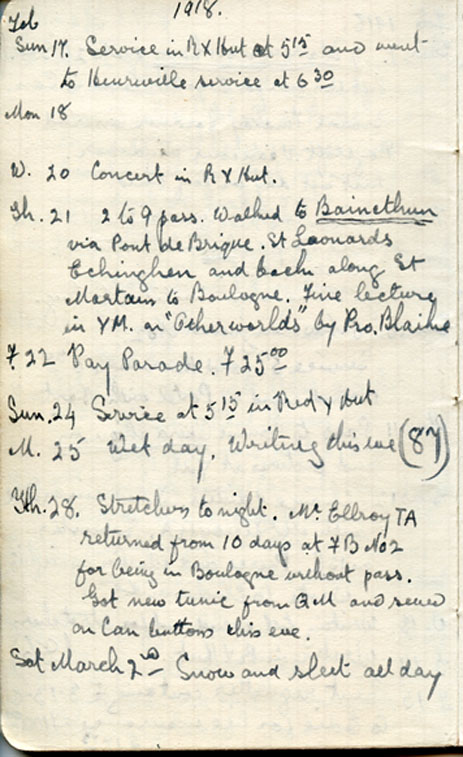 1918.
Feb
Sun 17. Service in R X Hut at 5 15 and went
to Henriville service at 6 30
Mon 18
W. 20 Concert in R X Hut.
Th. 21 2 to 9 pass. Walked to Bainethun
via Pont de Brique. St Leonards
Echinghen and back along St
Martains to Boulogne. Fine lecture
in YM. on "Otherworlds" by Pro. Blaine
F. 22 Pay Parade. F 25 00
Sun. 24 Service at 5 15 in Red X Hut
M. 25 Wet day. Writing this eve (87)
Th. 28. Stretchers to night. Mc Ellroy TA
returned from 10 days at FB No 2
for being in Boulogne without pass.
Got new tunic from QM and sewed
on Can buttons this eve.
Sat March 2nd Snow and sleet all day